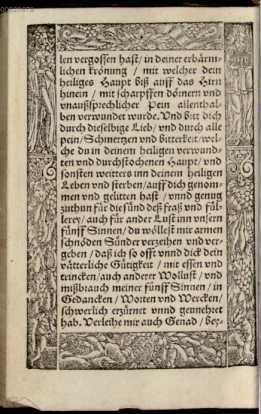 len vergossen hast/ in deiner erbärm-
lichen krönung / mit welcher dein
heiliges Haupt biß auff das Hirn
hinein / mit scharpffen dörnern vnd
vnaußsprechlicher Pein allenthal-
ben verwundet wurde. Vnd bitt dich
durch dieselbige Lieb/ vnd durch alle
pein/ Schmertzen vnd bitterkeit/ wel-
che du in deinem heiligen verwund-
ten vnd durchstochenen Haupt/ vnd
sonsten weitters inn deinem heiligen
Leben vnd sterben/ auff dich genom-
men vnd gelitten hast / vnnd genug
zuthun für die sünd deß fraß vnd fül-
lerey/ auch für ander Lust inn vnsern
fünff Sinnen/ du wöllest mir armen
schnöden Sünder verzeihen vnd ver-
geben / daß ich so offt vnnd dick dein
vätterliche Gütigkeit / mit essen vnd
trincken/ auch anderer Wollust / vnd
mißbrauch meiner fünff Sinnen / in
Gedancken / Worten vnd Wercken/
schwerlich erzürnet vnnd gemehret
hab. Verleihe mir auch Genad / bey-